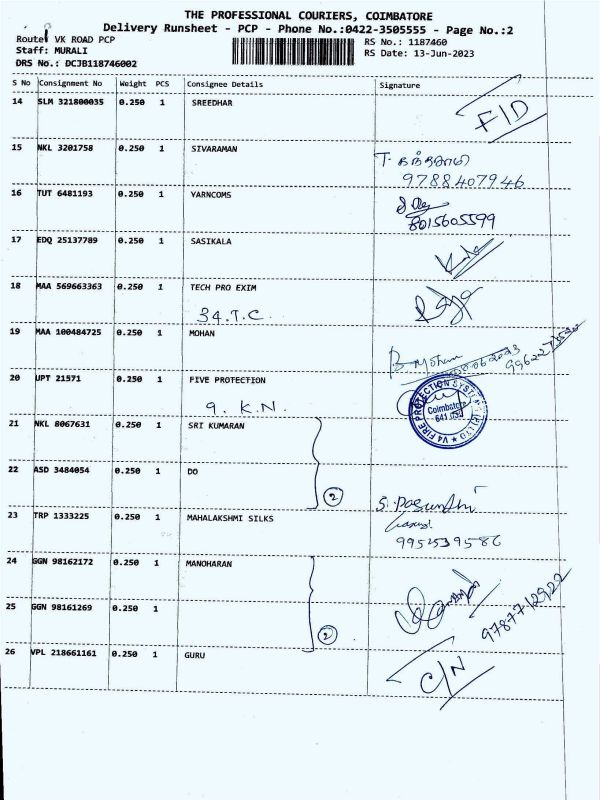 THE PROFESSIONAL COURIERS, COIMBATORE
Delivery Runsheet - PCP - Phone No.:0422-3505555 - Page No.:2
Route: VK ROAD PCP
Staff: MURALI
DRS No.: DCJB118746002
RS No.: 1187460
RS Date: 13-Jun-2023
S No Consignment No Weight PCS Consignee Details Signature
14 SLM 321800035 0.250 1 SREEDHAR F/D
15 NKL 3201758 0.250 1 SIVARAMAN T.
9788407946
16 TUT 6481193 0.250 1 YARNCOMS
8015605599
17 EDQ 25137789 0.250 1 SASIKALA
18 MAA 569663363 0.250 1 TECH PRO EXIM
34.T.C.
19 MAA 100484725 0.250 1 MOHAN B Mohan
20 UPT 21571 0.250 1 FIVE PROTECTION
9. K.N.
V4 FIRE PROTECTION SYSTEMS
Coimbatore
21 NKL 8067631 0.250 1 SRI KUMARAN
22 ASD 3484054 0.250 1 DO
2
23 TRP 1333225 0.250 1 MAHALAKSHMI SILKS
24 GGN 98162172 0.250 1 MANOHARAN
25 GGN 98161269 0.250 1
2
9787712922
26 VPL 218661161 0.250 1 GURU C/N